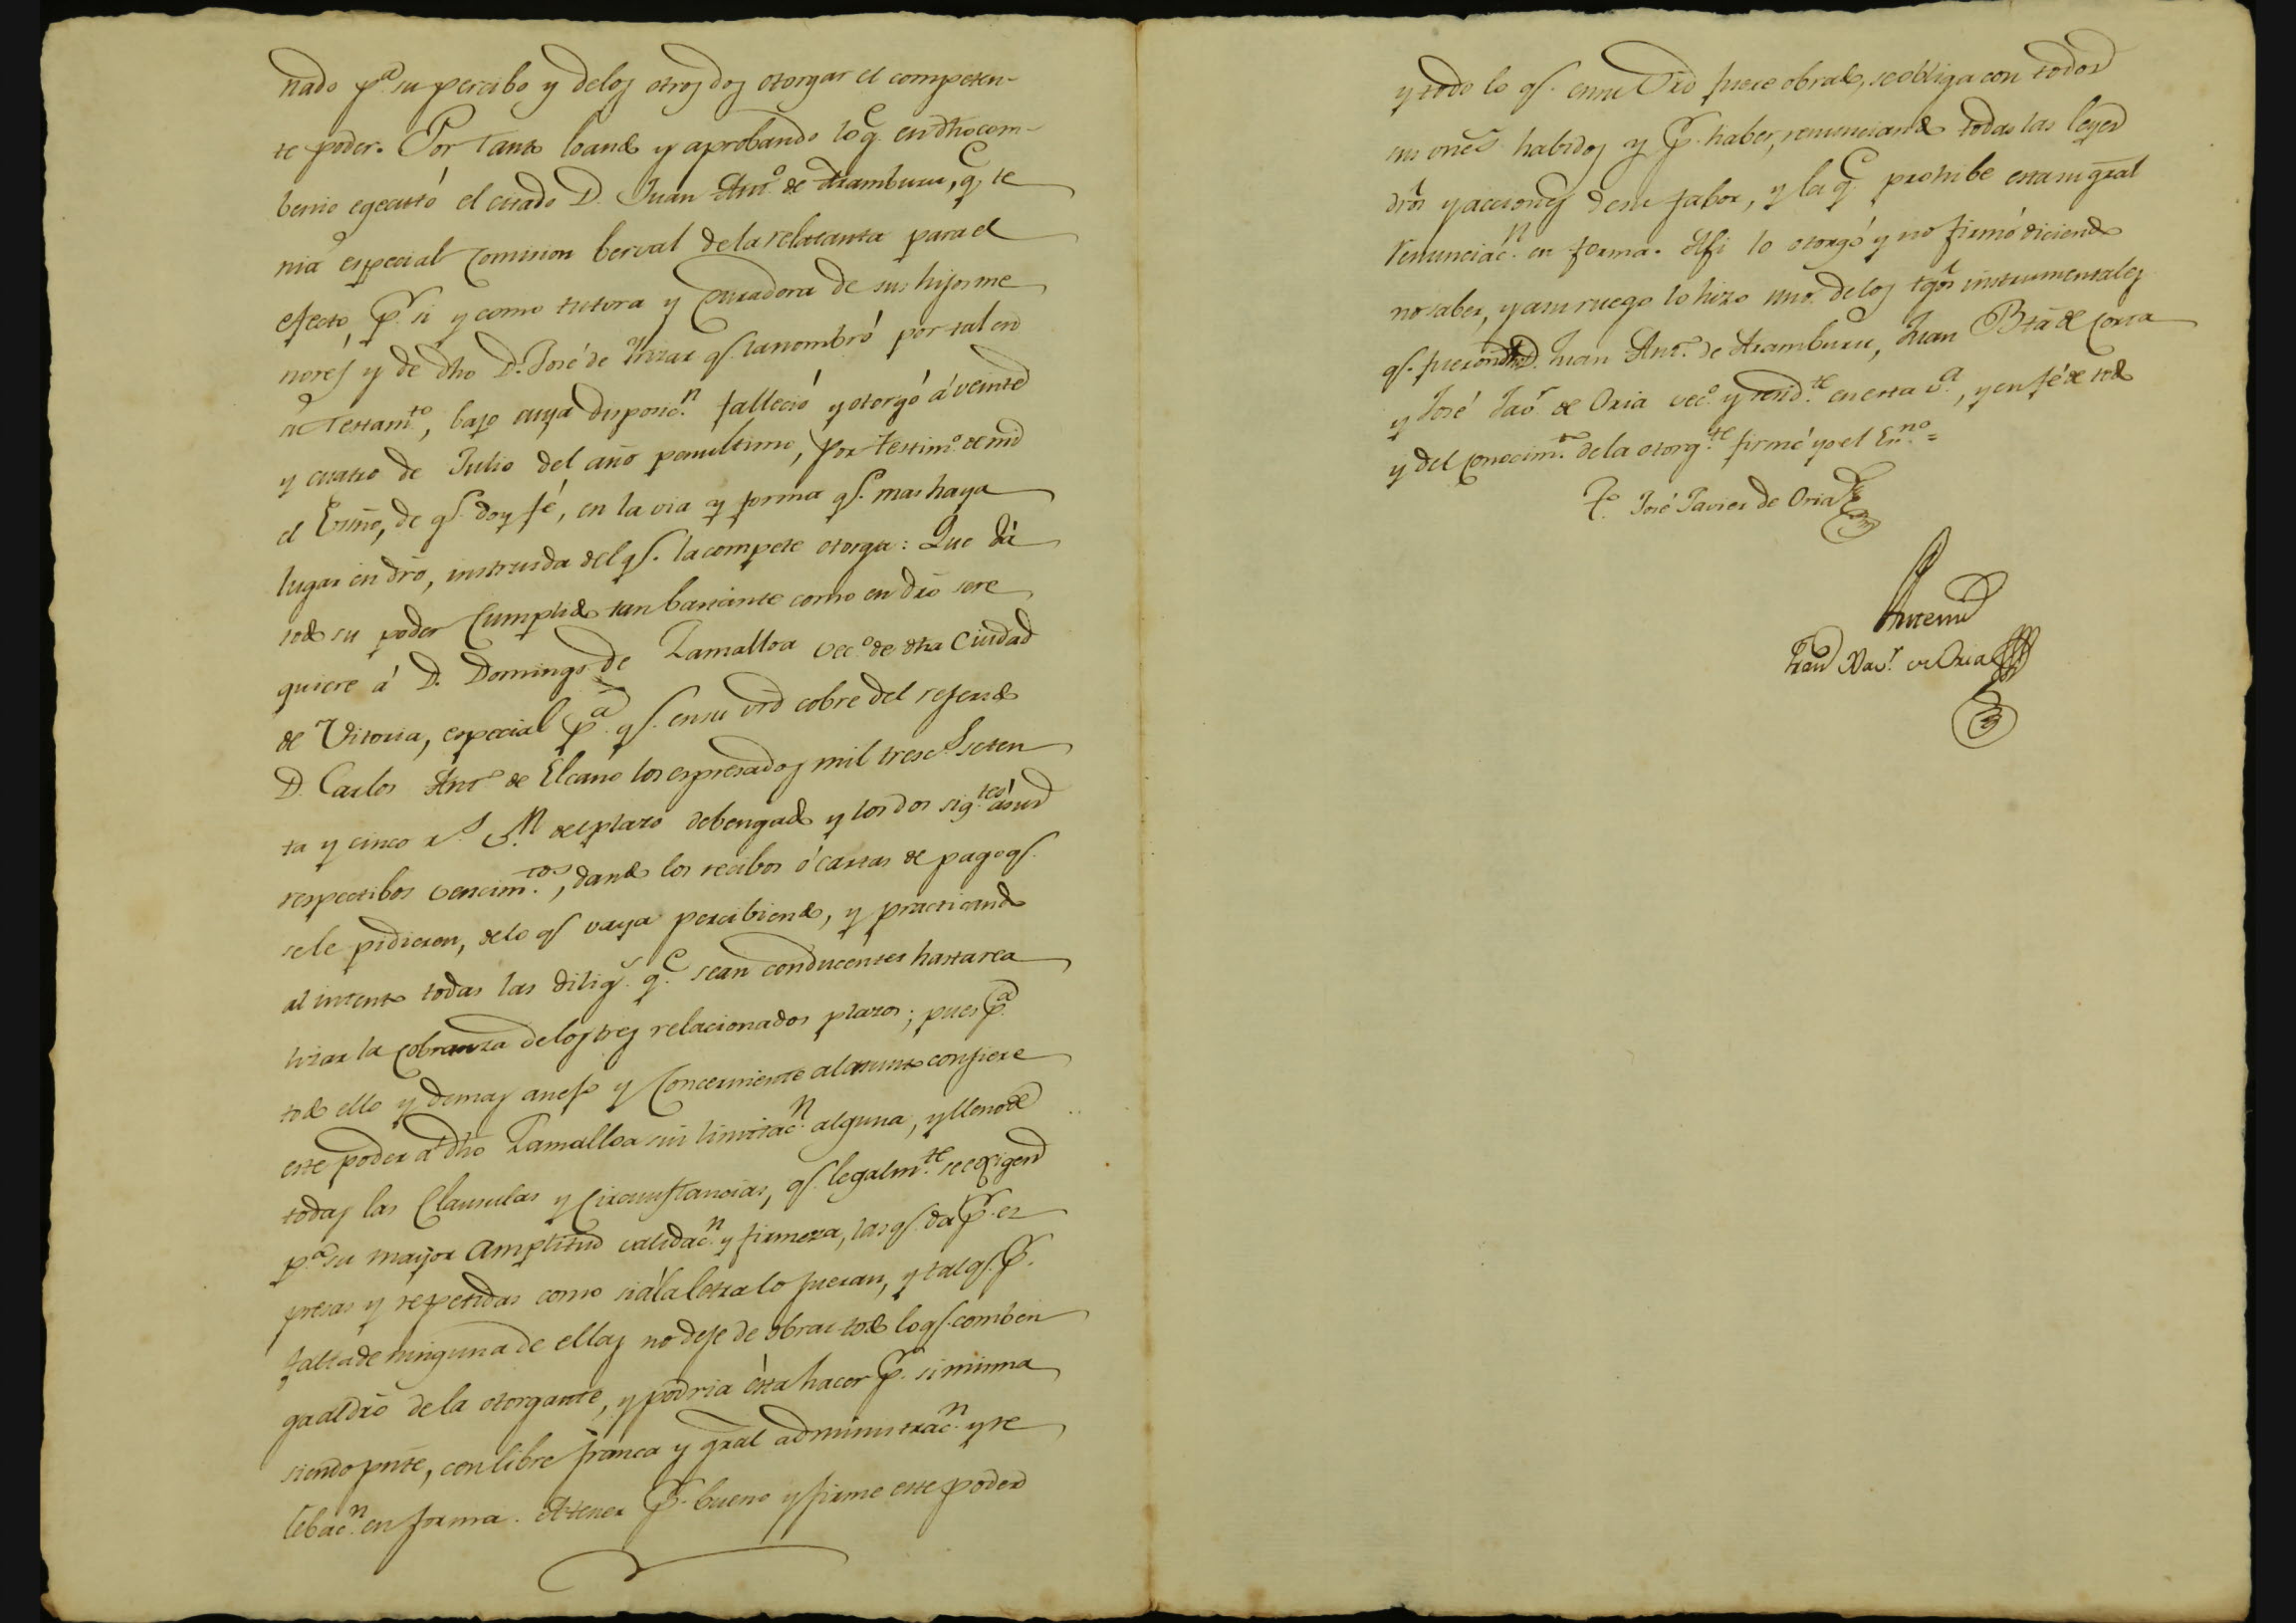 nado p.ª su percibo y delos otros dos otorgar el competen-
te poder. Por tanto loando y aprobando lo q.e en dho com-
benio egecutó el citado D. Juan Ant.º de Aramburu, q.e te
nia especial comision berval dela relatanta para el
efecto, p.r si y como tutora y curadora de sus hijos me
nores y de dho D. José de q.e la nombró por tal en
su Testam.to, bajo cuya disposic.n falleció y otorgó á veinte
y cuatro de Julio del año penultimo, por testim.º de mi
el Essño, de q.e doy fé, en la via y forma q.e mas haya
lugar en dró, instruida del q.e la compete otorga: Que dá
todo su poder cumplido tan bastante como en dró se re
quiere á D. Domingo de Zamalloa vec.º de dha Ciudad
de Vitoria, especial p.ª q.e en su vrd cobre del referido
D. Carlos Ant.º de Elcano los espresados mil tresc.s seten
ta y cinco r.s v.n del plazo debengado y los dos sig.tes á sus
respectibos vencim.tos, dando los recibos ó cartas de pago q.e
se le pidieren, de lo q.e vaya percibiendo, y practicando
al intento todas las dilig.s q.e sean conducentes hasta rea
lizar la cobranza delos tres relacionados plazos; pues p.ª
todo ello y demas anejo y concerniente al asunto confiere
este poder á dho Zamalloa sin limitac.n alguna, y lleno de
todas las clausulas y circunstancias, q.e legalm.te se exigen
p.ª su mayor amplitud validac.n y firmeza, las q.e da p.r es
presas y repetidas como si á la letra lo fueran, y tal q.e p.r
falta de ninguna de ellas no deje de obrar todo lo q.e comben
ga al dró de la otorgante, y podria ésta hacer p.r si misma
siendo pnte, con libre franca y gral administrac.n y re
lebac.n en forma. A tener p.r bueno y firme este poder
y todo lo q.e en su vrd fuere obrado, se obliga con todos
sus vnes habidos y p.r haber, renunciando todas las leyes
drõs y acciones de su fabor, y la q.e prohibe esta su gral
renunciac.n en forma. Asi lo otorgó y no firmó diciendo
no saber, y a su ruego lo hizo uno delos tgõs instrumentales
q.e fueron D. Juan Ant.º de Aramburu, Juan Btã de
y José Jav.r de Oria vec.s y resid.te en esta v.ª, y en fé de todo
y del conocim.to de la otorg.te firmé yo el Es.no =
T.º José Javier de Oria
Antemi
Xav.r de Oria